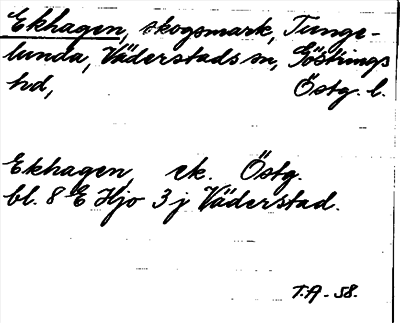 Ekhagen, skogsmark, Tunge-
lunda, Väderstads sn, Göstrings
hd, Östg. l.
Ekhagen, ek. Östg.
bl. 8 E Hjo 3 j Väderstad.
T.A - 58.